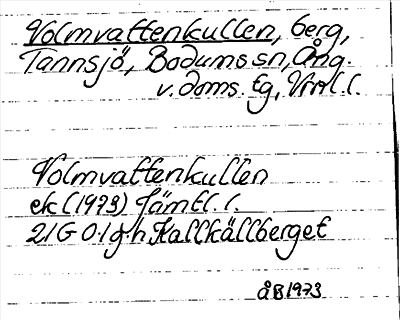 Volmvattenkullen, berg,
Tannsjö, Bodums sn, Ång.
v. doms. tg, Vnl. l.
Volmvattenkullen
ek (1973) Jämtl. l.
21G 0-1 g-h Kallkällberget
ÅB 1973